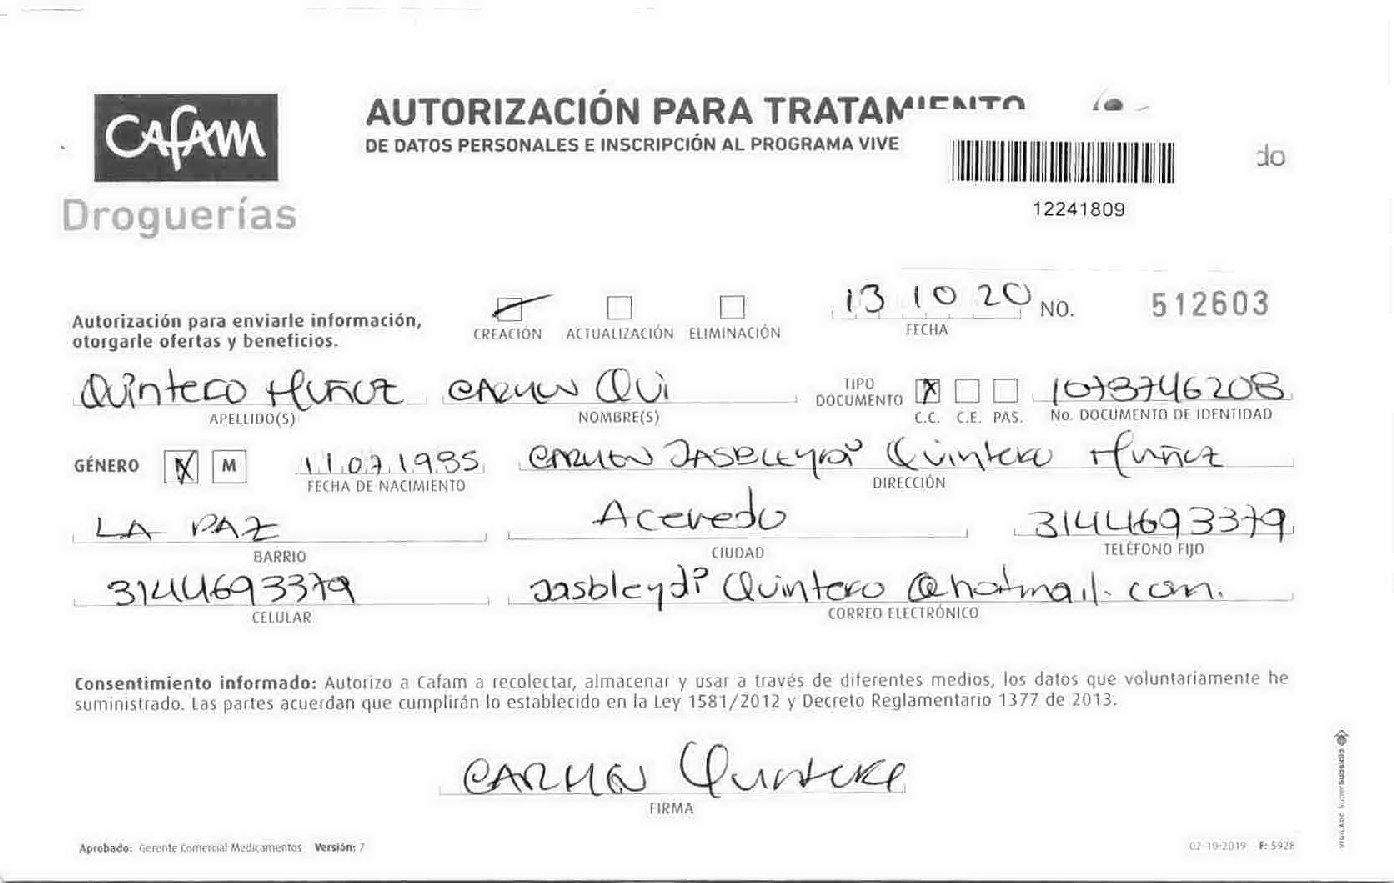 CAFAM
Droguerías
AUTORIZACIÓN PARA TRATAMIENTO
DE DATOS PERSONALES E INSCRIPCIÓN AL PROGRAMA VIVE
do
12241809
Autorización para enviarle información,
otorgarle ofertas y beneficios.
CREACIÓN ACTUALIZACIÓN ELIMINACIÓN
13 10 20 NO. 512603
FECHA
Quintero Muñoz CARMEN Qui TIPO DOCUMENTO X 1073746208
APELLIDO(S) NOMBRE(S) C.C. C.E. PAS. No. DOCUMENTO DE IDENTIDAD
GÉNERO X M 11.07.1985 CARMEN JASBLEYDI Quintero Muñoz
FECHA DE NACIMIENTO DIRECCIÓN
LA PAZ Acevedo 3144693379
BARRIO CIUDAD TELÉFONO FIJO
3144693379 Jasbleydi Quintero @hotmail.com.
CELULAR CORREO ELECTRÓNICO
Consentimiento informado: Autorizo a Cafam a recolectar, almacenar y usar a través de diferentes medios, los datos que voluntariamente he
suministrado. Las partes acuerdan que cumplirán lo establecido en la Ley 1581/2012 y Decreto Reglamentario 1377 de 2013.
CARMEN Quintero
FIRMA
Aprobado: Gerente Comercial Medicamentos Versión: 7
02-10-2019 F: 5928